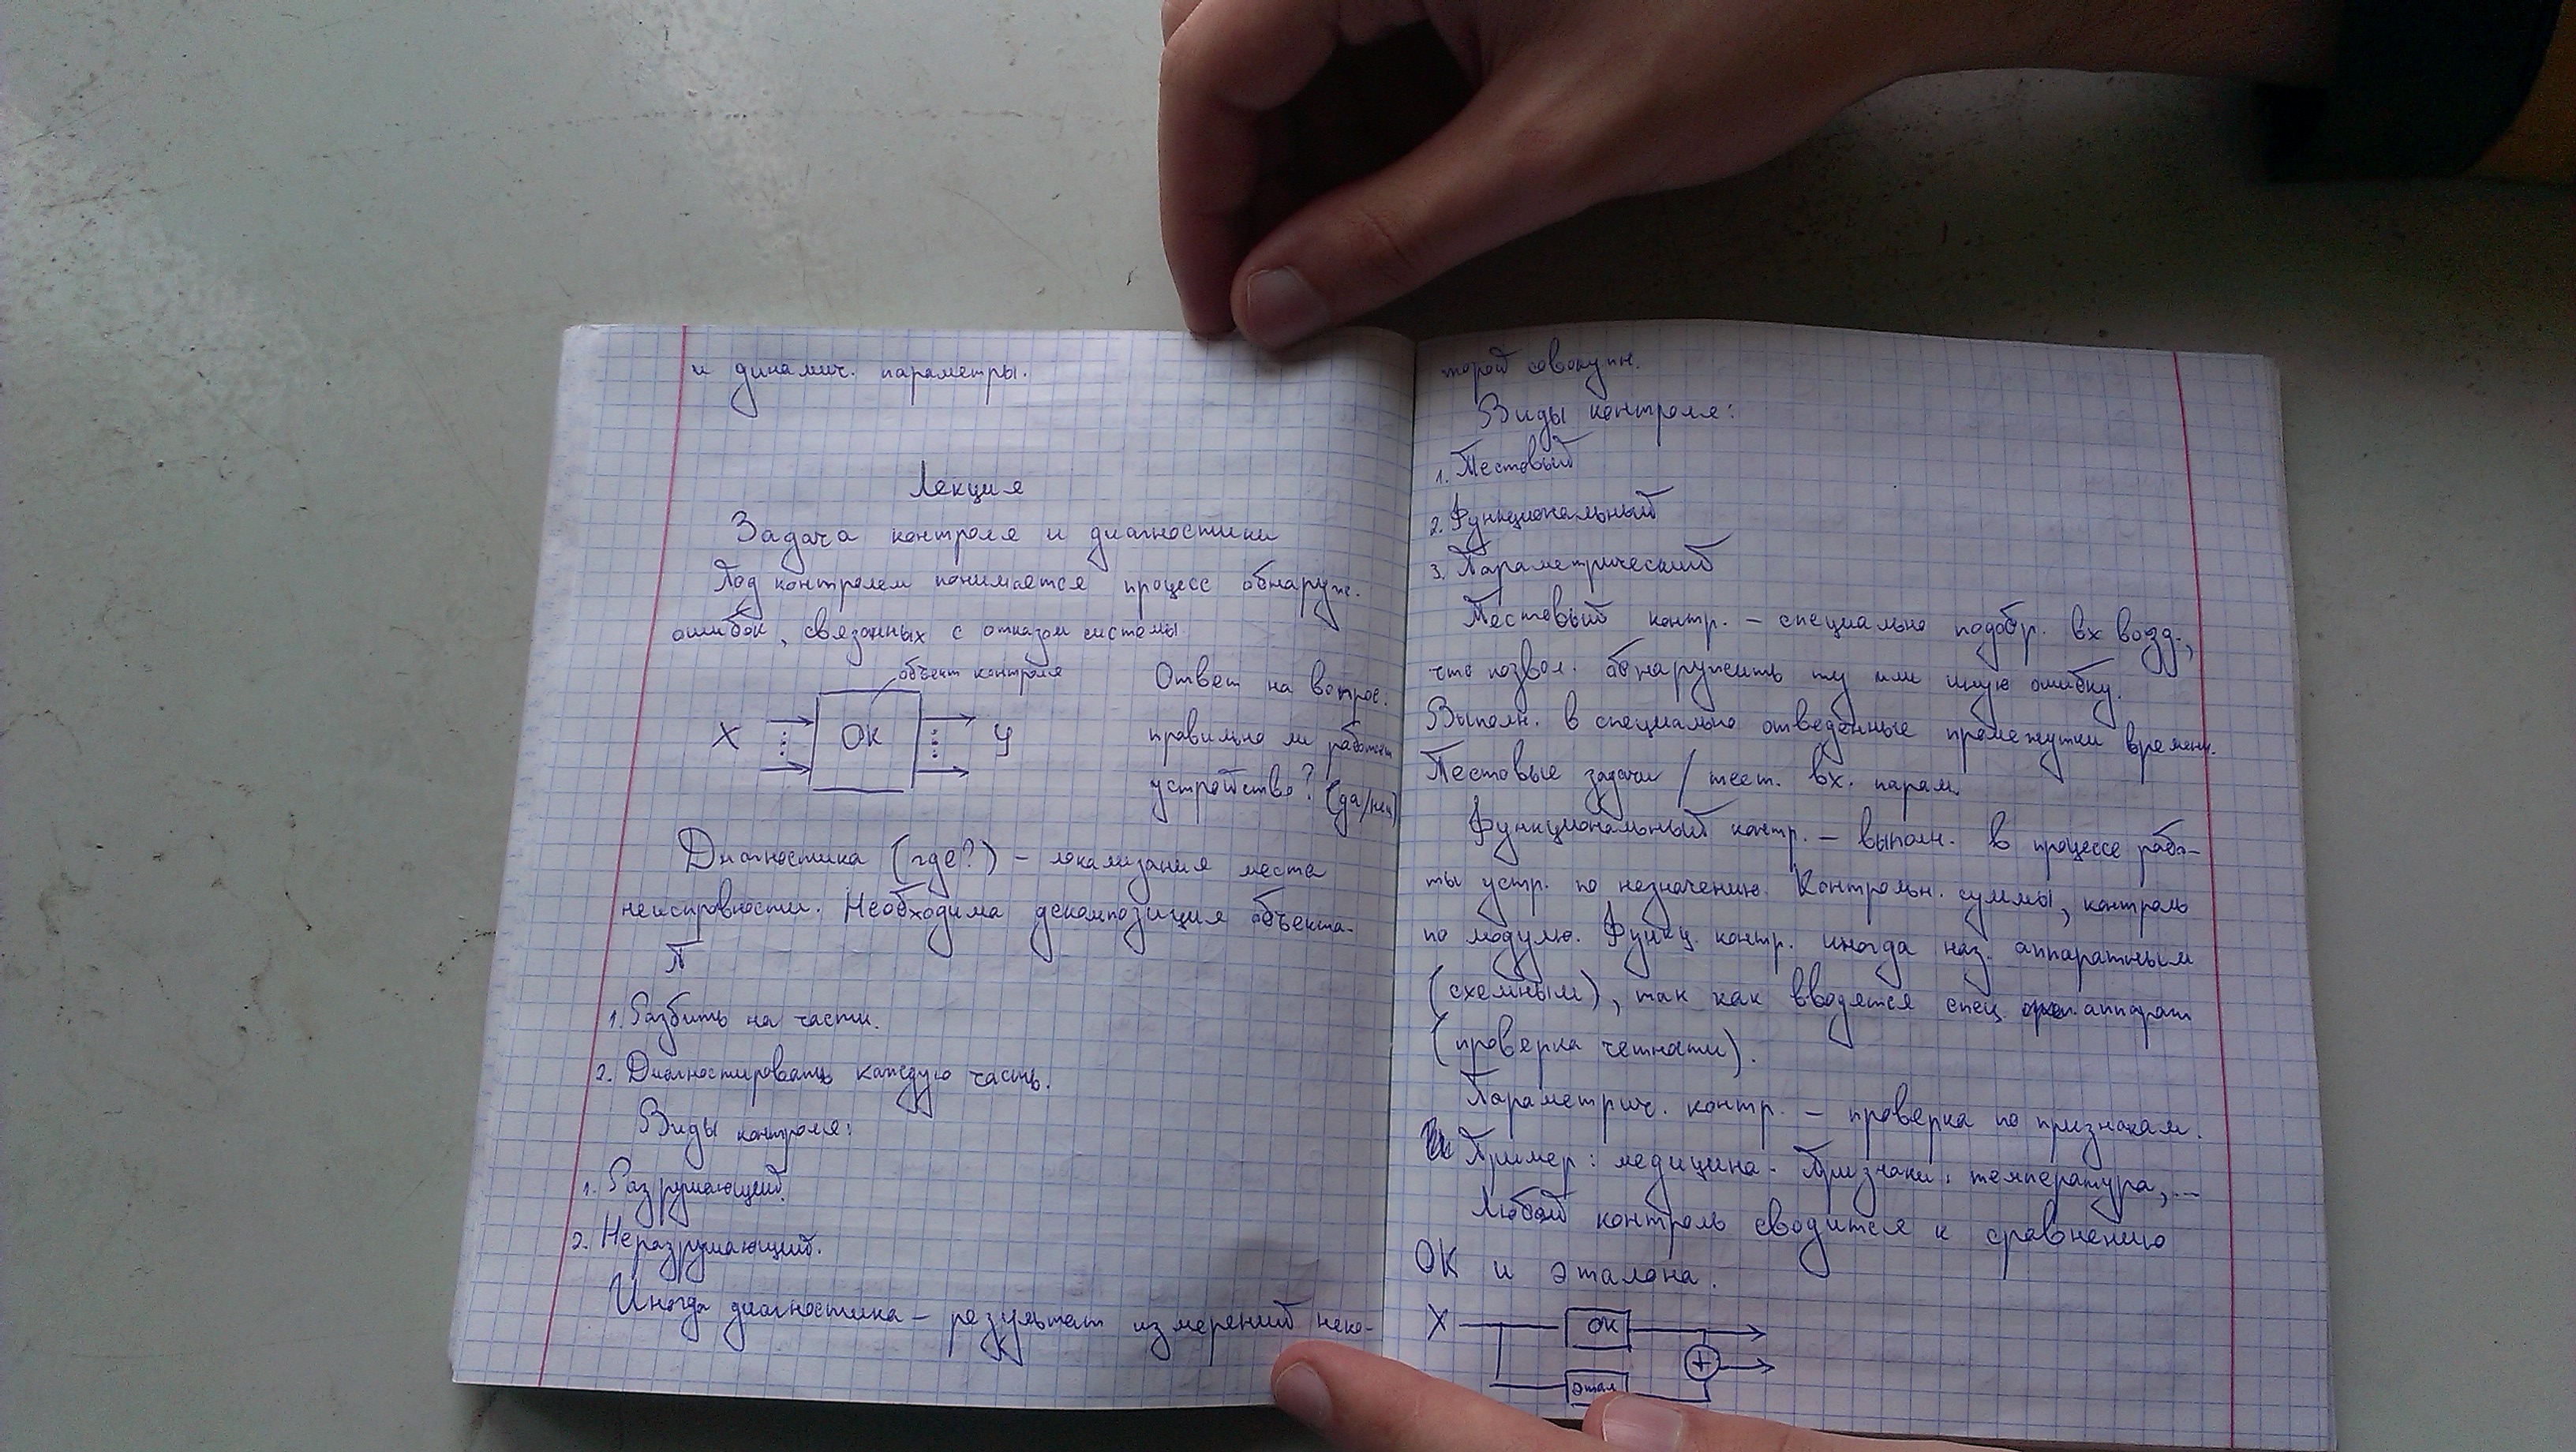 и динамич. параметры.
Лекция
Задача контроля и диагностики
Под контролем понимается процесс обнаруж.
ошибок, связанных с отказом системы
объект контроля
Ответ на вопрос.
X ОК У
правильно ли работает
устройство? (да/нет)
Диагностика (где?) – локализация места
неисправности. Необходима декомпозиция объекта.
П
1. Разбить на части.
2. Диагностировать каждую часть.
Виды контроля:
1. Разрушающий.
2. Неразрушающий.
Иногда диагностика – результат измерений неко-
торой совокупн.
Виды контроля:
1. Тестовый
2. Функциональный
3. Параметрический
Тестовый контр. – специально подобр. вх возд.,
что позвол. обнаружить ту или иную ошибку.
Выполн. в специально отведённые промежутки времени.
Тестовые задачи / тест. вх. парам.
Функциональный контр. – выполн. в процессе рабо-
ты устр. по назначению. Контрольн. суммы, контроль
по модулю. Функц. контр. иногда наз. аппаратным
(схемным), так как вводятся спец. аппарат
(проверка четности).
Параметрич. контр. – проверка по признакам.
Пример: медицина. Признаки: температура,...
Любой контроль сводится к сравнению
ОК и эталона.
X ОК
+
Этал